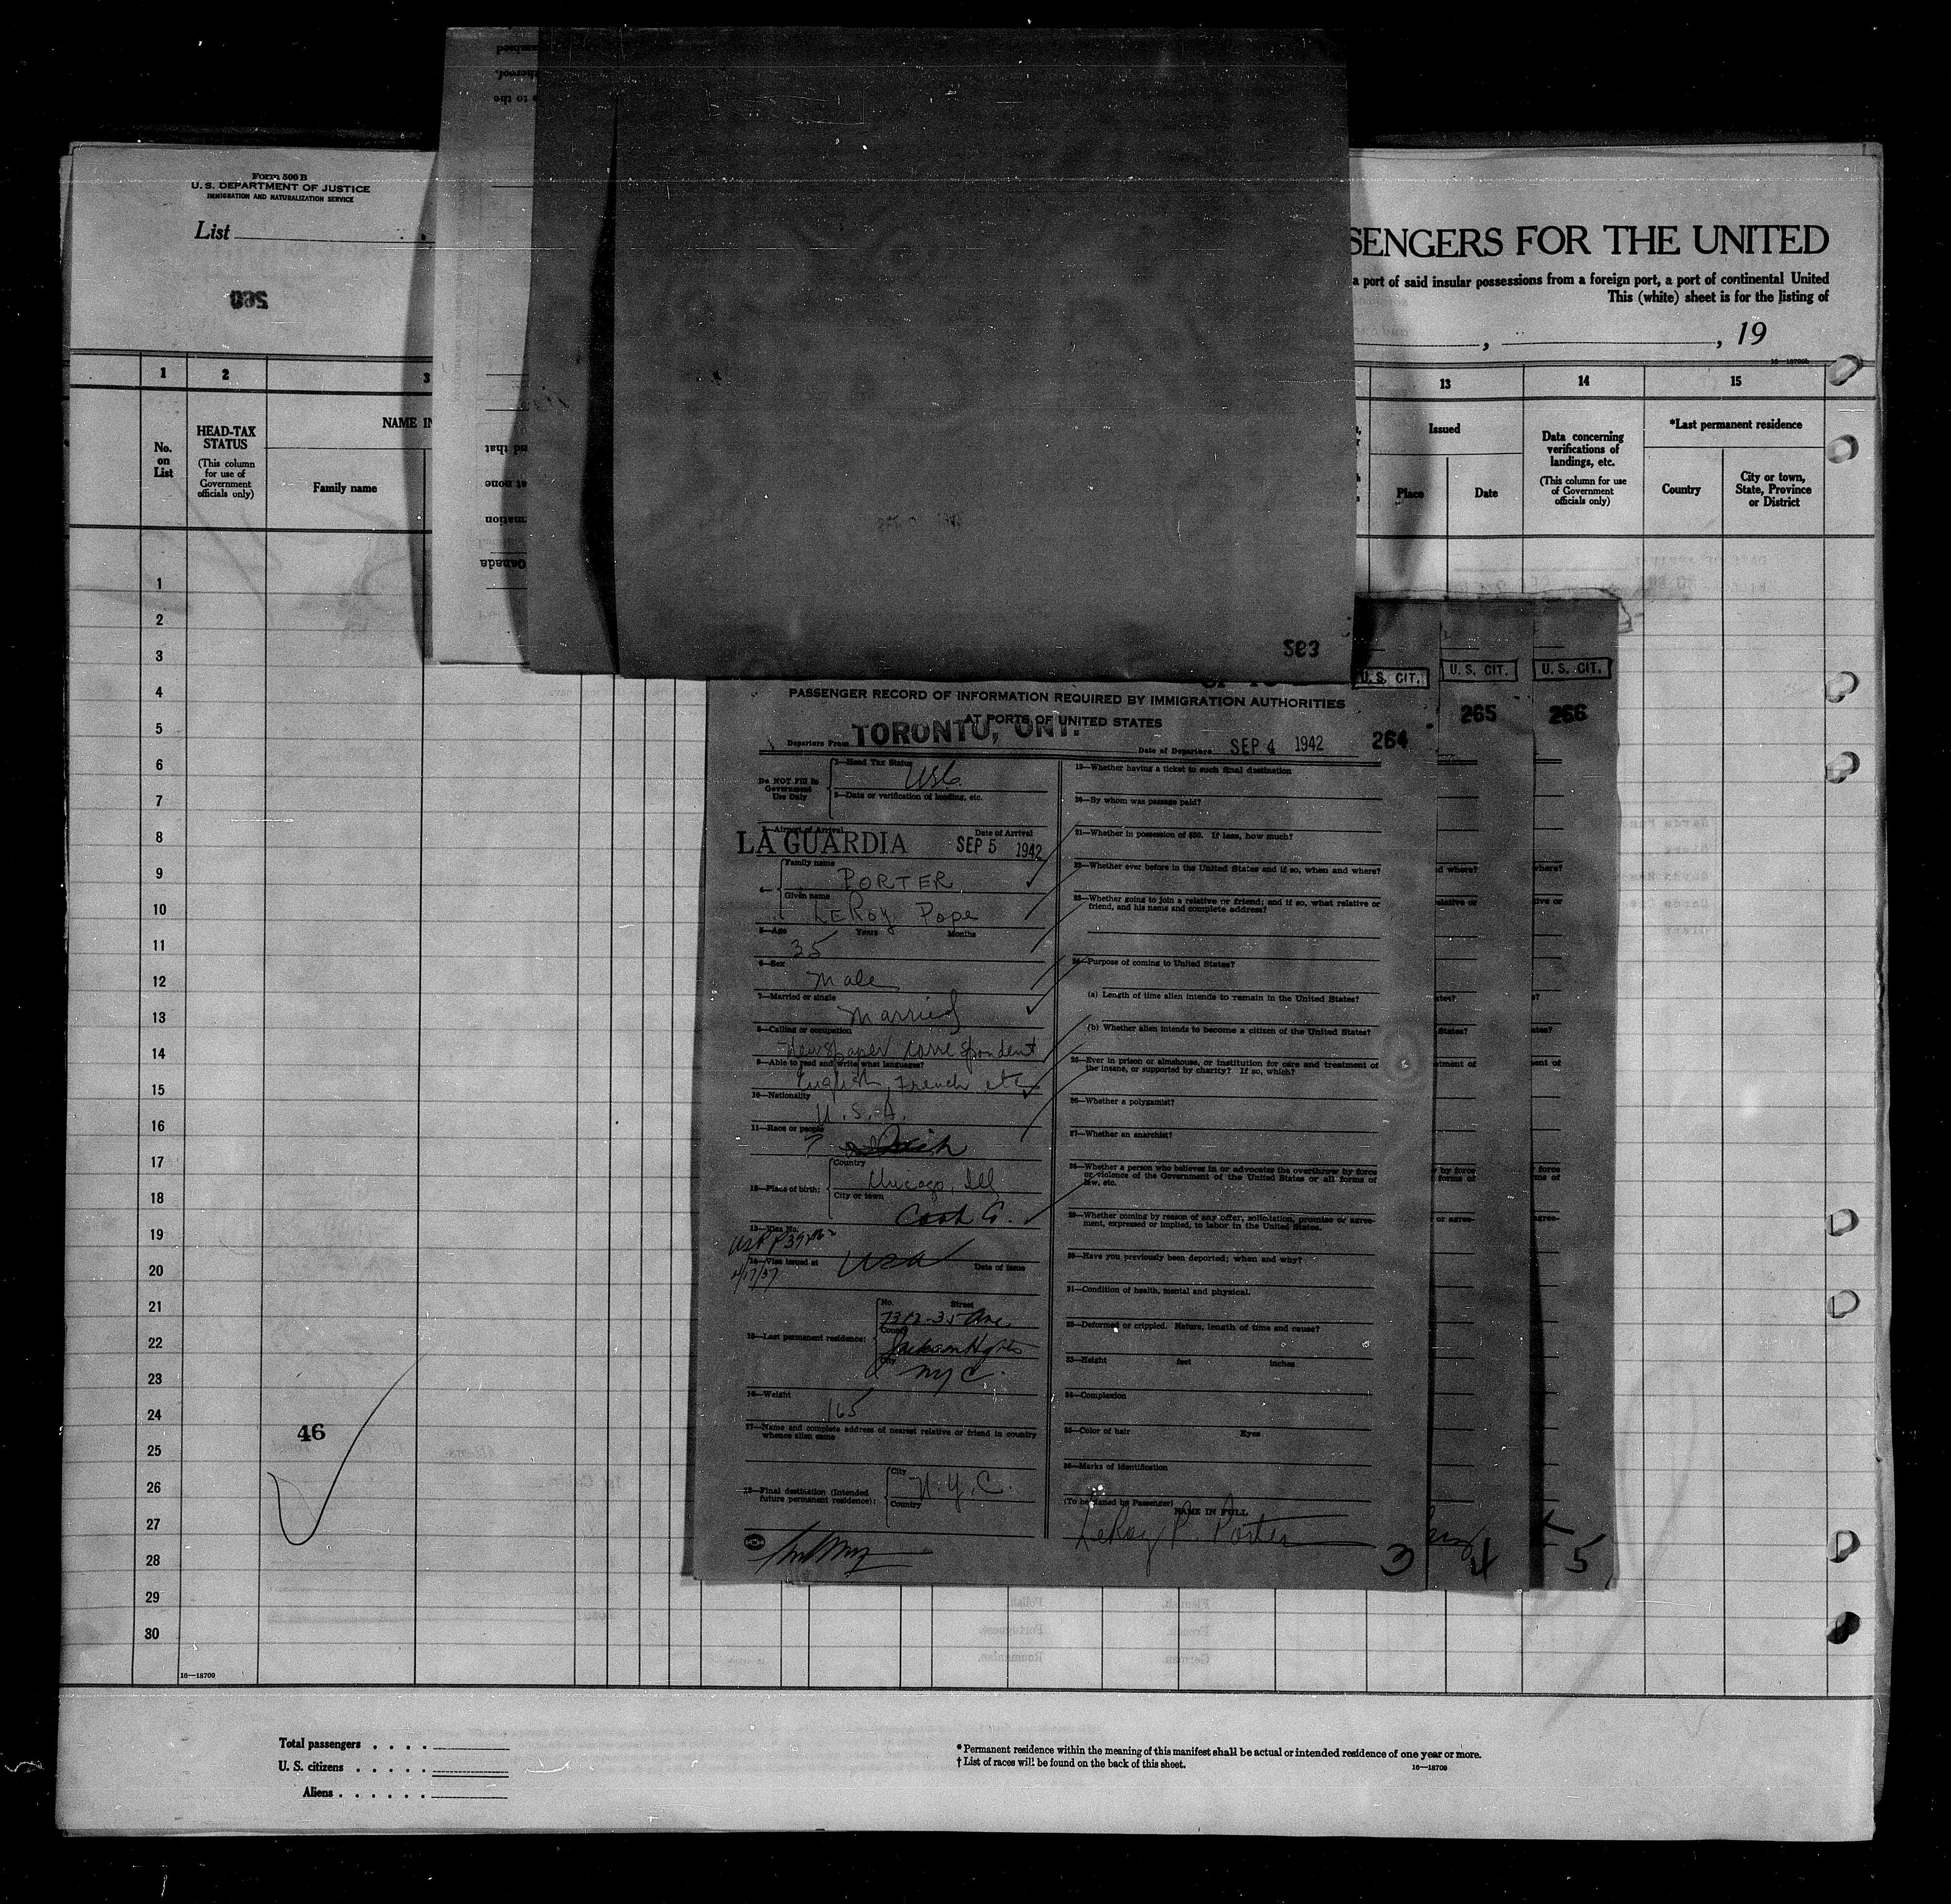 Form 500 B
U. S. DEPARTMENT OF JUSTICE
IMMIGRATION AND NATURALIZATION SERVICE
List
SENGERS FOR THE UNITED
a port of said insular possessions from a foreign port, a port of continental United
This (white) sheet is for the listing of
, , 19
1 2 3 13 14 15
No. on List
HEAD-TAX STATUS
(This column for use of Government officials only)
NAME IN
Family name
Issued
Place
Date
Data concerning verifications of landings, etc.
(This column for use of Government officials only)
*Last permanent residence
Country
City or town, State, Province or District
1
2
3
4
5
6
7
8
9
10
11
12
13
14
15
16
17
18
19
20
21
22
23
24
25
26
27
28
29
30
46
16—18709
583
U. S. CIT.
U. S. CIT.
U. S. CIT.
264
265
266
PASSENGER RECORD OF INFORMATION REQUIRED BY IMMIGRATION AUTHORITIES
AT PORTS OF UNITED STATES
Departure From TORONTO, ONT.
Date of Departure SEP 4 1942
Do NOT Fill in Government Use Only
1—Head Tax Status USC
2—Date or verification of landing, etc.
3—Airport of Arrival LA GUARDIA
Date of Arrival SEP 5 1942
4—
Family name PORTER
Given name LeRoy Pope
5—Age 35 Years Months
6—Sex Male
7—Married or single Married
8—Calling or occupation Newspaper correspondent
9—Able to read and write what languages? English, French, etc
10—Nationality U. S. A.
11—Race or people
12—Place of birth:
Country Chicago, Ill
City or town Cook Co.
13—Visa No.
14—Visa issued at USA Date of issue
4/17/37
15—Last permanent residence:
No. Street 7312-35 Ave
County Jackson Hgts
City NYC
16—Weight 165
17—Name and complete address of nearest relative or friend in country
whence alien came
18—Final destination (Intended
future permanent residence):
City N.Y.C.
Country
19—Whether having a ticket to such final destination
20—By whom was passage paid?
21—Whether in possession of $50. If less, how much?
22—Whether ever before in the United States and if so, when and where?
23—Whether going to join a relative or friend; and if so, what relative or
friend, and his name and complete address?
24—Purpose of coming to United States?
(a) Length of time alien intends to remain in the United States?
(b) Whether alien intends to become a citizen of the United States?
25—Ever in prison or almshouse, or institution for care and treatment of
the insane, or supported by charity? If so, which?
26—Whether a polygamist?
27—Whether an anarchist?
28—Whether a person who believes in or advocates the overthrow by force
or violence of the Government of the United States or all forms of
law, etc.
29—Whether coming by reason of any offer, solicitation, promise or agree-
ment, expressed or implied, to labor in the United States.
30—Have you previously been deported; when and why?
31—Condition of health, mental and physical.
32—Deformed or crippled. Nature, length of time and cause?
33—Height feet inches
34—Complexion
35—Color of hair Eyes
36—Marks of identification
(To be signed by Passenger) NAME IN FULL
LeRoy P. Porter
3
4
5
Total passengers . . . .
U. S. citizens . . . . .
Aliens . . . . . .
* Permanent residence within the meaning of this manifest shall be actual or intended residence of one year or more.
† List of races will be found on the back of this sheet.
16—18709